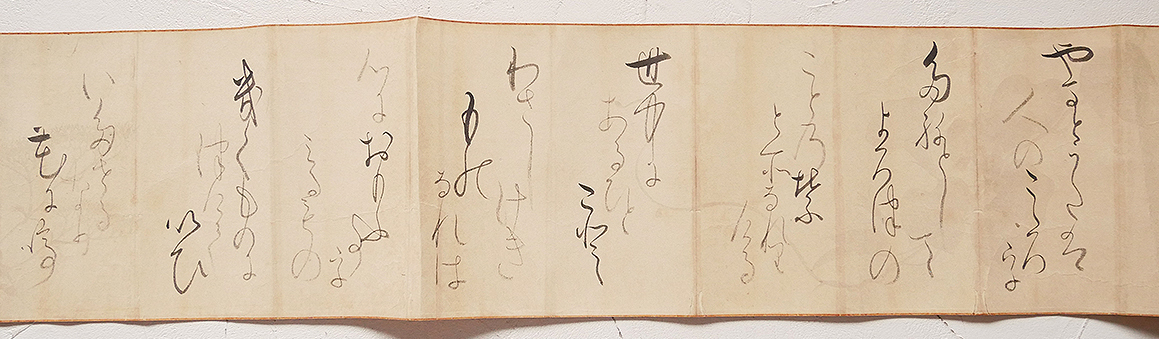 やまとうたは
人のこゝろを
たねとして
よろつの
ことの葉
とそなれり
ける
世中に
あるひと
こと
わさしけき
もの
なれは
心におもふ
事を
みるもの
きくものに
つけて
いひ
いたせる
なり
花に鳴